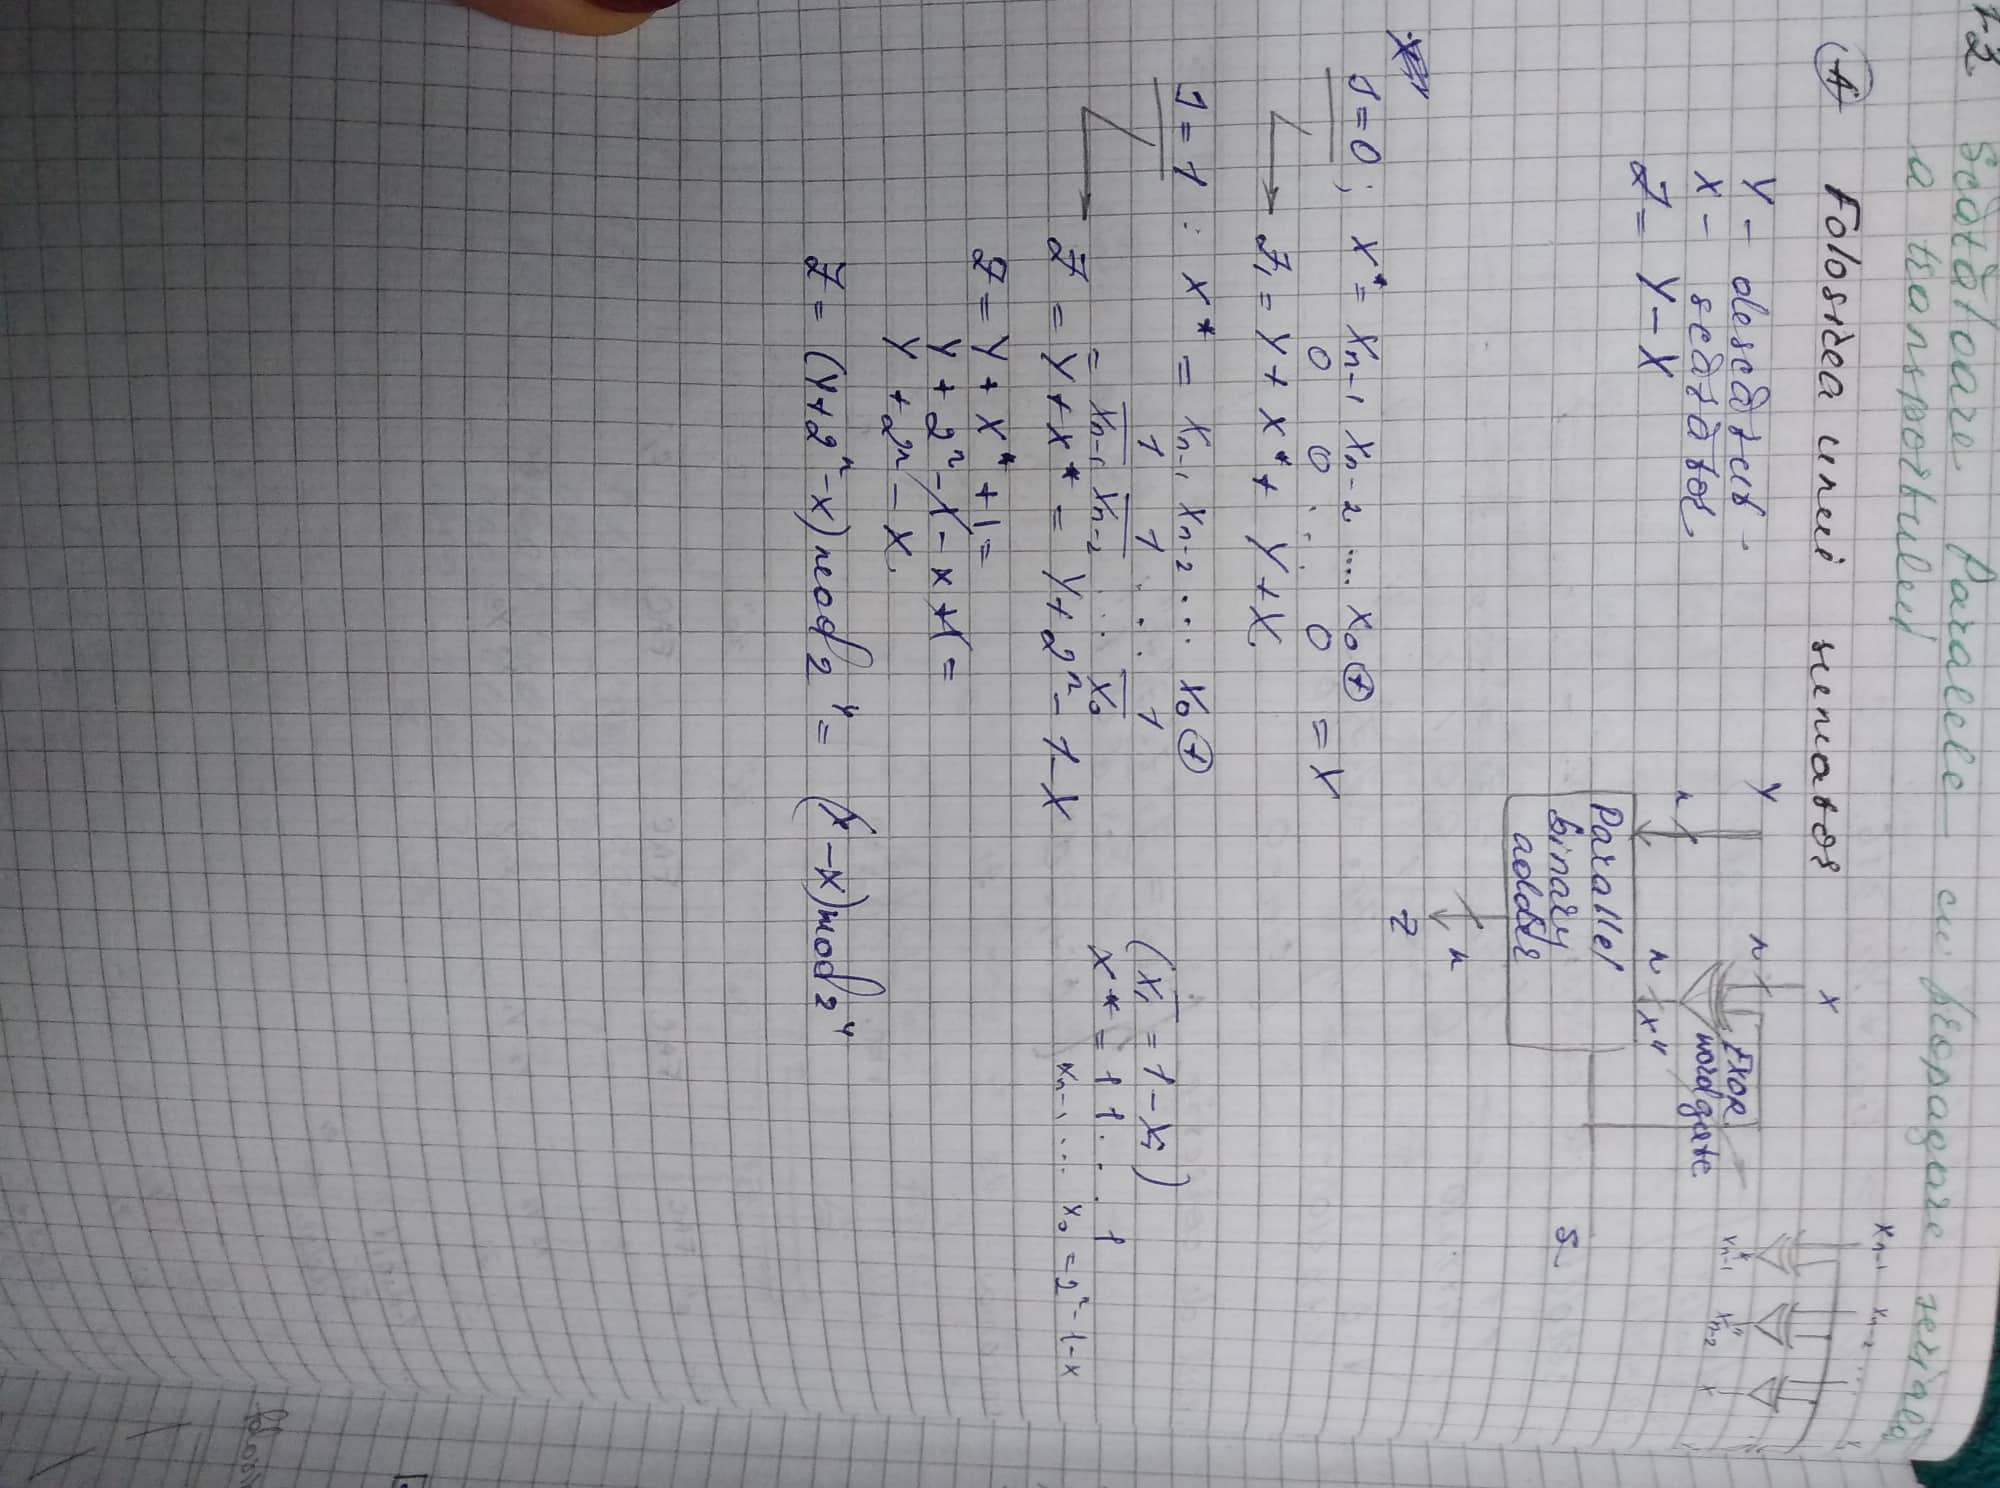 Scăzătoare Paralele cu propagare serială
a transportului
A Folosirea unui sumator
Y - descăzut
X - scăzător
Z = Y - X
Y
X
n
n
EXOR
word gate
n
X*
Parallel
binary
adder
n
Z
S
Xn-1 Xn-2 ...
X*n-1 X*n-2 X
S=0; X* = Xn-1 Xn-2 .... X0 ⊕
0 0 ... 0 = X
Z1 = Y + X* + Y + X
S = 1 : X* = Xn-1 Xn-2 ... X0 ⊕
1 1 ... 1
= X̅n-1 X̅n-2 ... X̅0
(X̅i = 1 - Xi)
X* = 1 1 . . . 1
Xn-1 ... X0 = 2ⁿ - 1 - X
Z = Y + X* = Y + 2ⁿ - 1 - X
Z = Y + X* + 1 =
Y + 2ⁿ - 1 - X + 1 =
Y + 2ⁿ - X
Z = (Y + 2ⁿ - X) mod 2ⁿ = (Y - X) mod 2ⁿ